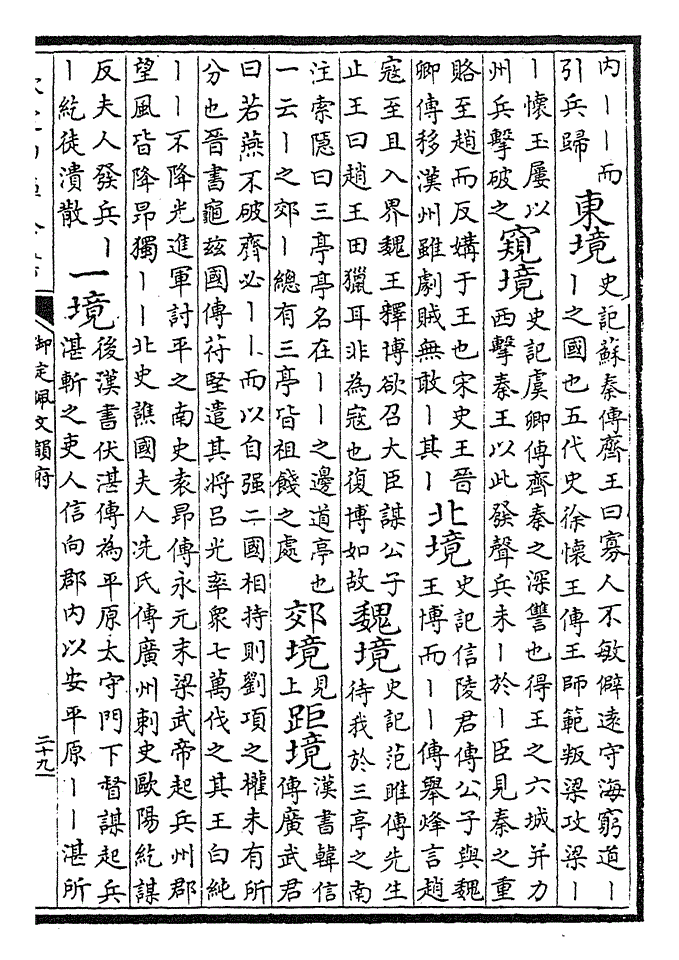 内丨丨而
引兵歸
東境
史記蘇秦傳齊王曰寡人不敏僻遠守海窮道丨
丨之國也五代史徐懷王傳王師範叛梁攻梁丨
丨懷玉屢以
州兵擊破之
窺境
史記虞卿傳齊秦之深讐也得王之六城并力
西擊秦王以此發聲兵未丨於丨臣見秦之重
賂至趙而反媾于王也宋史王晉
卿傳移漢州雖劇賊無敢丨其丨
北境
史記信陵君傳公子與魏
王博而丨丨傳舉烽言趙
寇至且入界魏王釋博欲召大臣謀公子
止王曰趙王田獵耳非為寇也復博如故
魏境
史記范雎傳先生
待我於三亭之南
注索隱曰三亭亭名在丨丨之邊道亭也
一云丨之郊丨總有三亭皆祖餞之處
郊境
見
上
距境
漢書韓信
傳廣武君
曰若燕不破齊必丨丨而以自强二國相持則劉項之權未有所
分也晉書龜兹國傳苻堅遣其將呂光率衆七萬伐之其王白純
丨丨不降光進軍討平之南史袁昂傳永元末梁武帝起兵州郡
望風皆降昂獨丨丨北史譙國夫人冼氏傳廣州刺史歐陽紇謀
反夫人發兵丨
丨紇徒潰散
一境
後漢書伏湛傳為平原太守門下督謀起兵
湛斬之吏人信向郡内以安平原丨丨湛所
御定佩文韻府
二十九